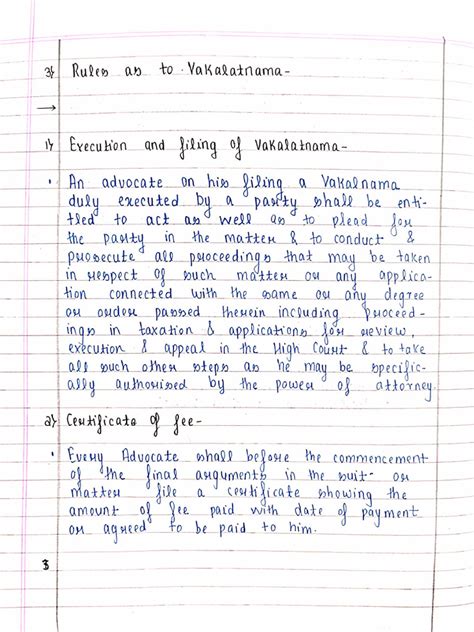 3) Rules as to Vakalatnama-
→
1) Execution and filing of Vakalatnama-
• An advocate on his filing a Vakalnama
duly executed by a party shall be enti-
tled to act as well as to plead for
the party in the matter & to conduct &
prosecute all proceedings that may be taken
in respect of such matter or any applica-
tion connected with the same or any degree
or order passed therein including proceed-
ings in taxation & applications for review,
execution & appeal in the High Court & to take
all such other steps as he may be specific-
ally authorised by the power of attorney.
2) Certificate of fee-
• Every Advocate shall before the commencement
of the final arguments in the suit- or
matter file a certificate showing the
amount of fee paid with date of payment
or agreed to be paid to him.
3